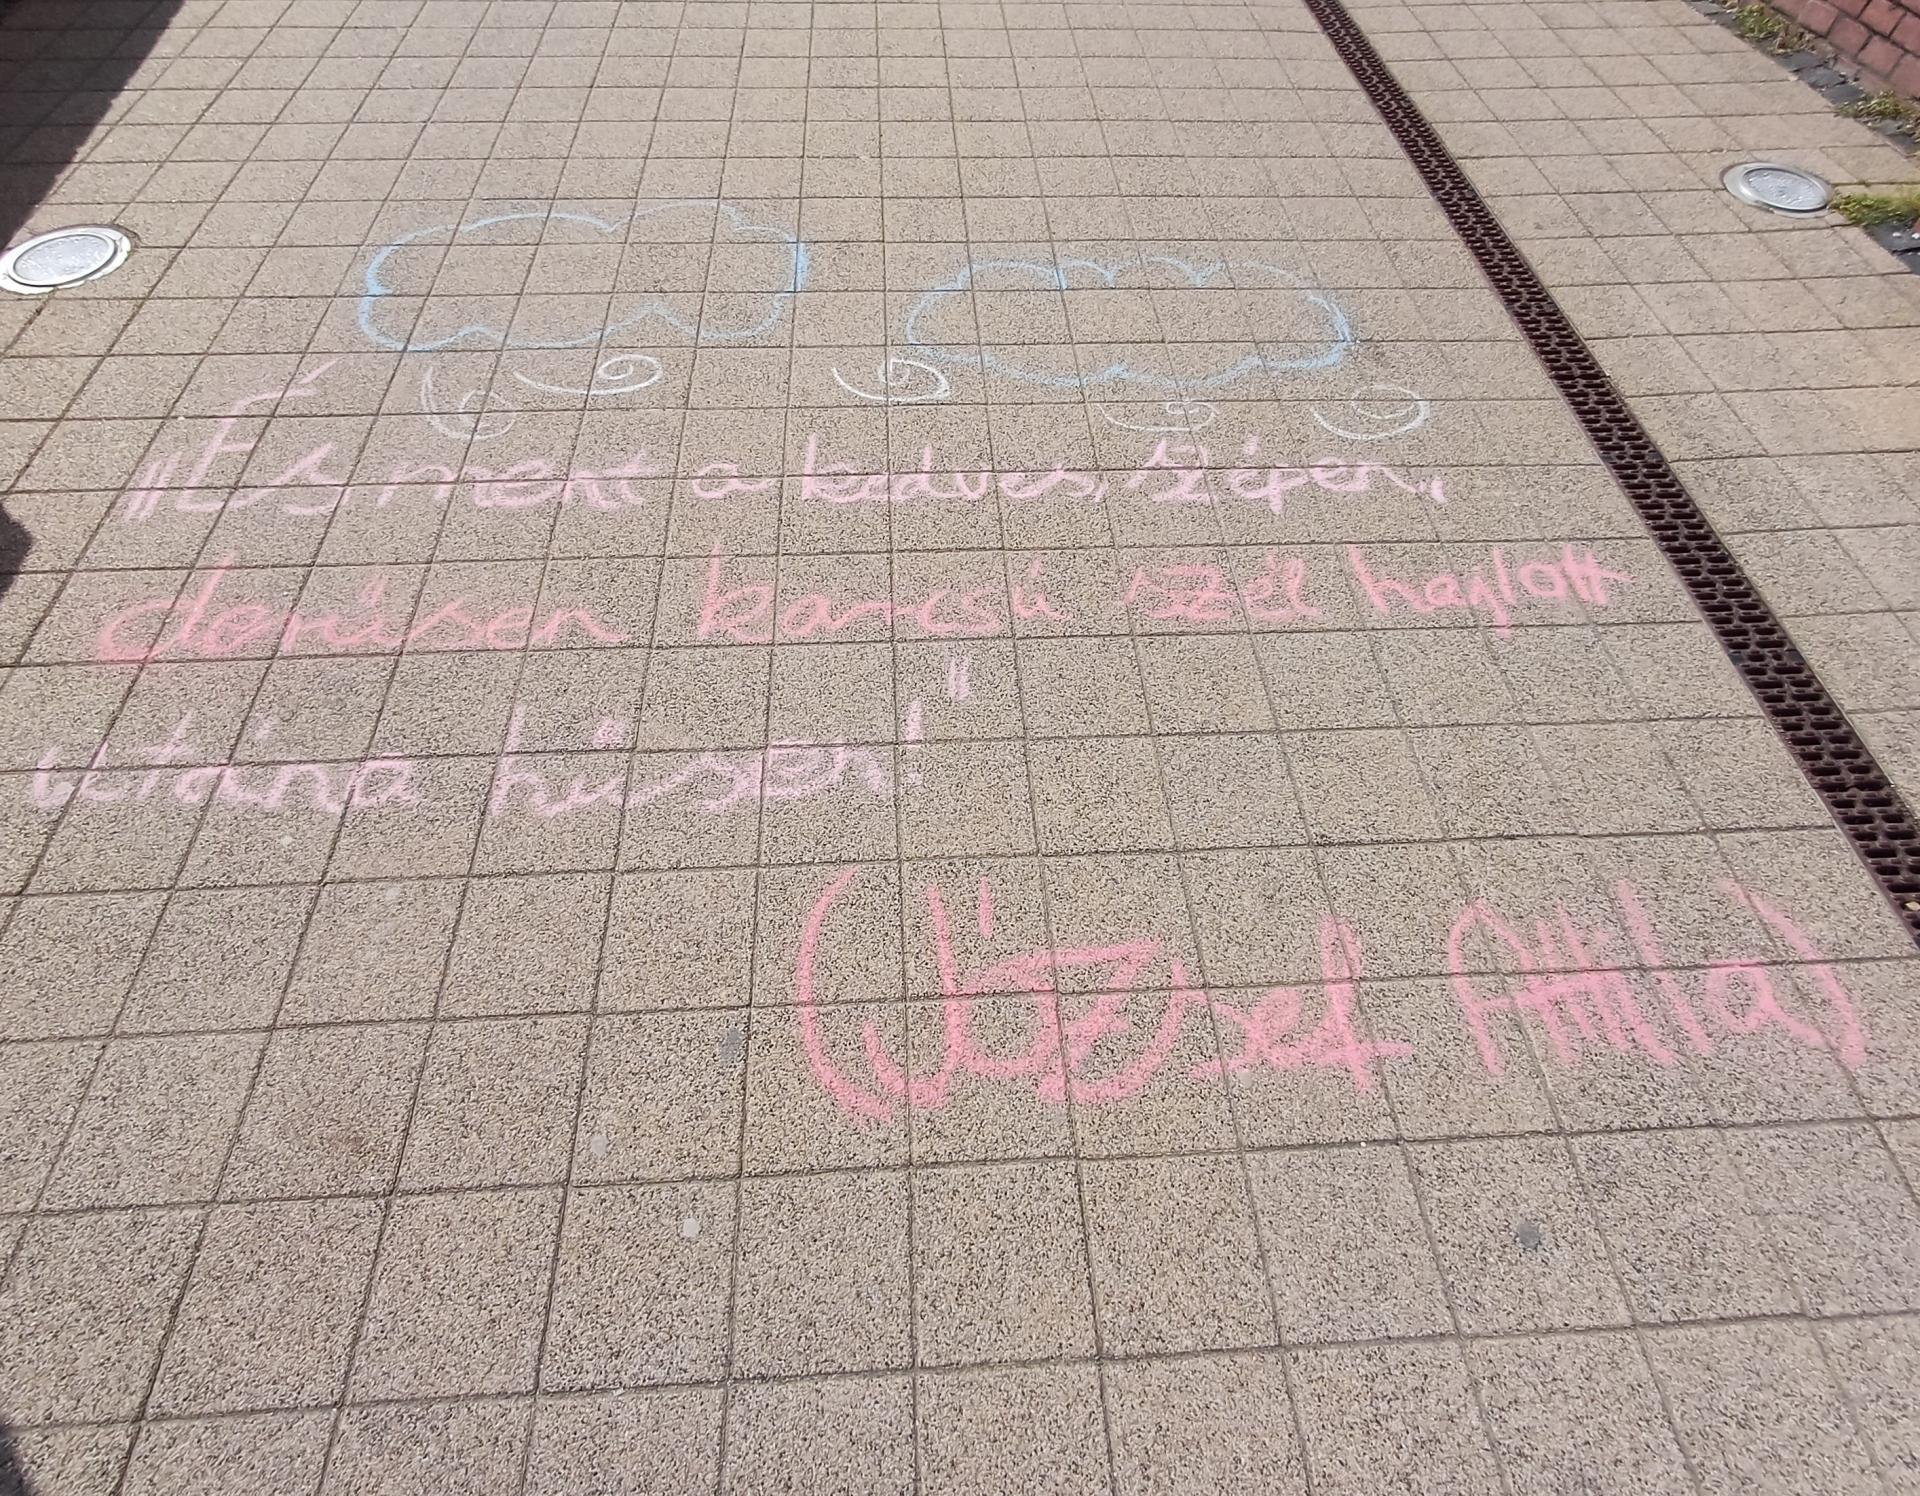 „És ment a kedves, szépen,
derüsen karcsú szél hajlott
utána hüsen!"
(József Attila)